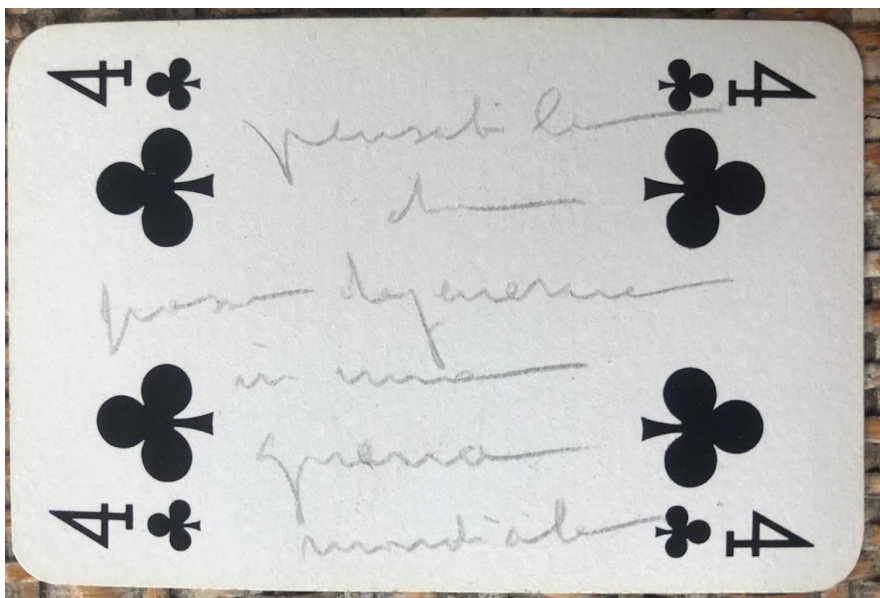 4 4
pensabile
che
possa degenerare
in una
guerra
mondiale
4 4